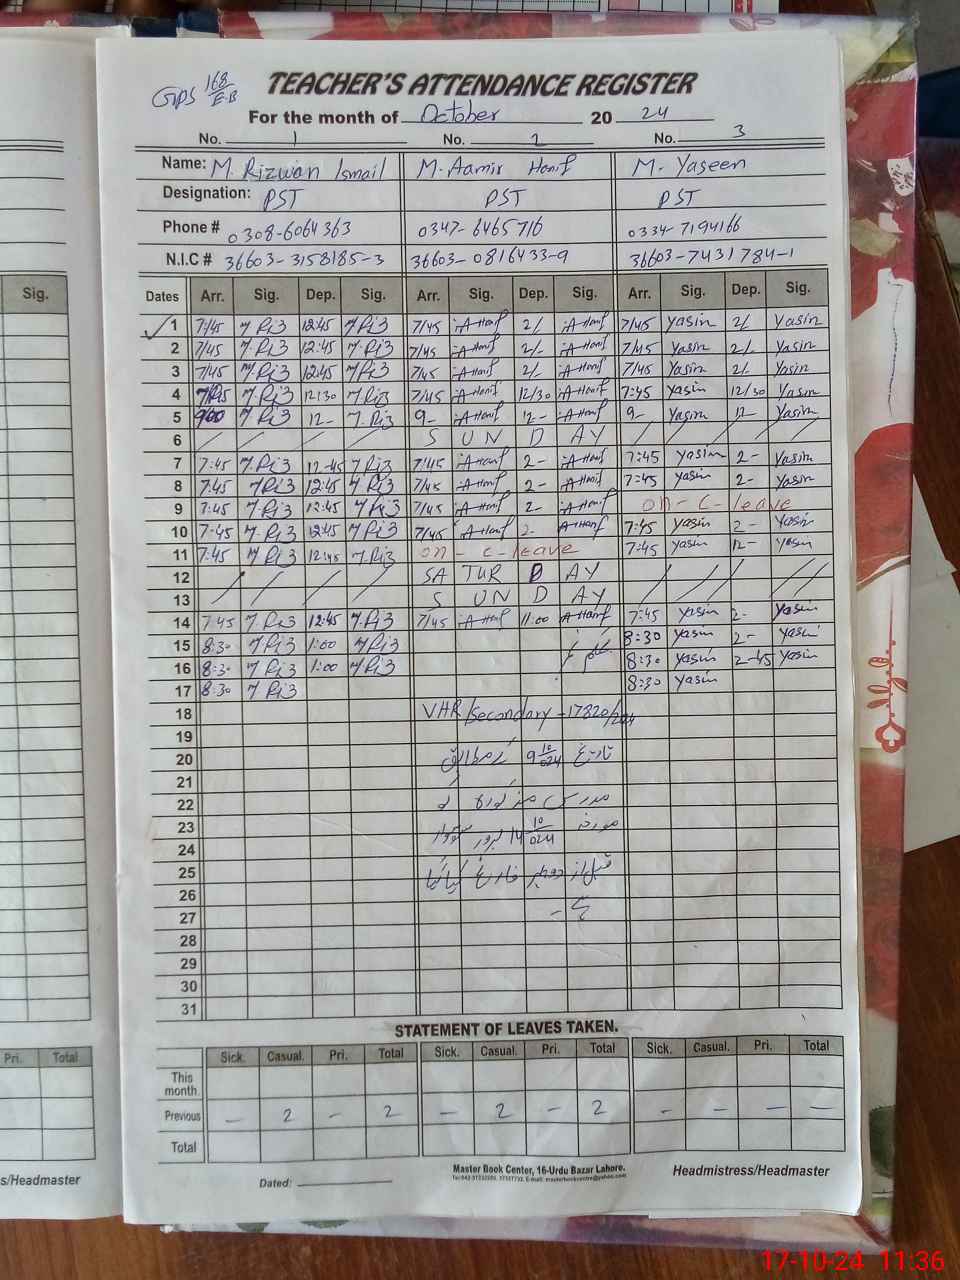 GPS 168/E.B
TEACHER'S ATTENDANCE REGISTER
For the month of October 2024
No. 1 No. 2 No. 3
Name: M. Rizwan Ismail M. Aamir Hanif M. Yaseen
Designation: PST PST PST
Phone # 0308-6064363 0347-6465716 0334-7194166
N.I.C # 36603-3158185-3 36603-0816433-9 36603-7431784-1
Sig. Dates Arr. Sig. Dep. Sig. Arr. Sig. Dep. Sig. Arr. Sig. Dep. Sig.
1 7/45 12:45 7/45 A Hanif 2/ A Hanif 7/45 Yasin 2/ Yasin
2 7/45 12:45 7/45 A Hanif 2/- A Hanif 7/45 Yasin 2/- Yasin
3 7/45 12:45 7/45 A Hanif 2/- A Hanif 7/45 Yasin 2/- Yasin
4 12:30 7/45 A Hanif 12/30 A Hanif 7:45 Yasin 12/30 Yasin
5 900 12- 9- A Hanif 12- A Hanif 9- Yasin 12- Yasin
6 S UN D AY
7 7:45 12-45 7/45 A Hanif 2- A Hanif 7:45 Yasin 2- Yasin
8 7:45 12:45 7/45 A Hanif 2- A Hanif 7:45 Yasin 2- Yasin
9 7:45 12:45 7/45 A Hanif 2- A Hanif on - C - leave
10 7-45 12:45 7/45 A Hanif 2- A Hanif 7:45 Yasin 2- Yasin
11 7:45 12:45 on - C - leave 7:45 Yasin 12- Yasin
12 SA TUR D AY
13 S UN D AY
14 7:45 12:45 7/45 A Hanif 11:00 A Hanif 7:45 Yasin 2- Yasin
15 8:30 1:00 8:30 Yasin 2- Yasin
16 8:30 1:00 8:30 Yasin 2-45 Yasin
17 8:30 8:30 Yasin
18 VHR/Secondary-17820/
19
20 تاریخ 9 10/024
21
22
23 مورخہ 14 10/024 بروز
24
25 قبل از دوپہر فارغ کیا گیا
26 ہے -
27
28
29
30
31
STATEMENT OF LEAVES TAKEN.
Pri. Total Sick. Casual. Pri. Total Sick. Casual. Pri. Total Sick. Casual. Pri. Total
This month
Previous - 2 - 2 - 2 - 2 - - - -
Total
s/Headmaster Dated: Master Book Center, 16-Urdu Bazar Lahore. Headmistress/Headmaster
17-10-24 11:36